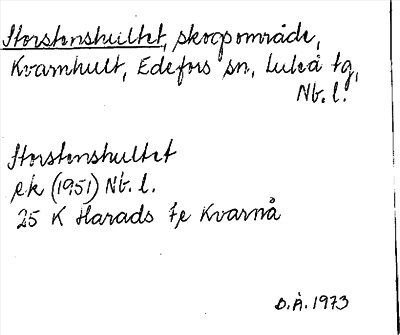 Storstenshultet, skogsområde,
Kvarnhult, Edefors sn, Luleå tg,
Nb. l.
Storstenshultet
ek (1951) Nb. l.
25 K Harads 7e Kvarnå
D.Å. 1973